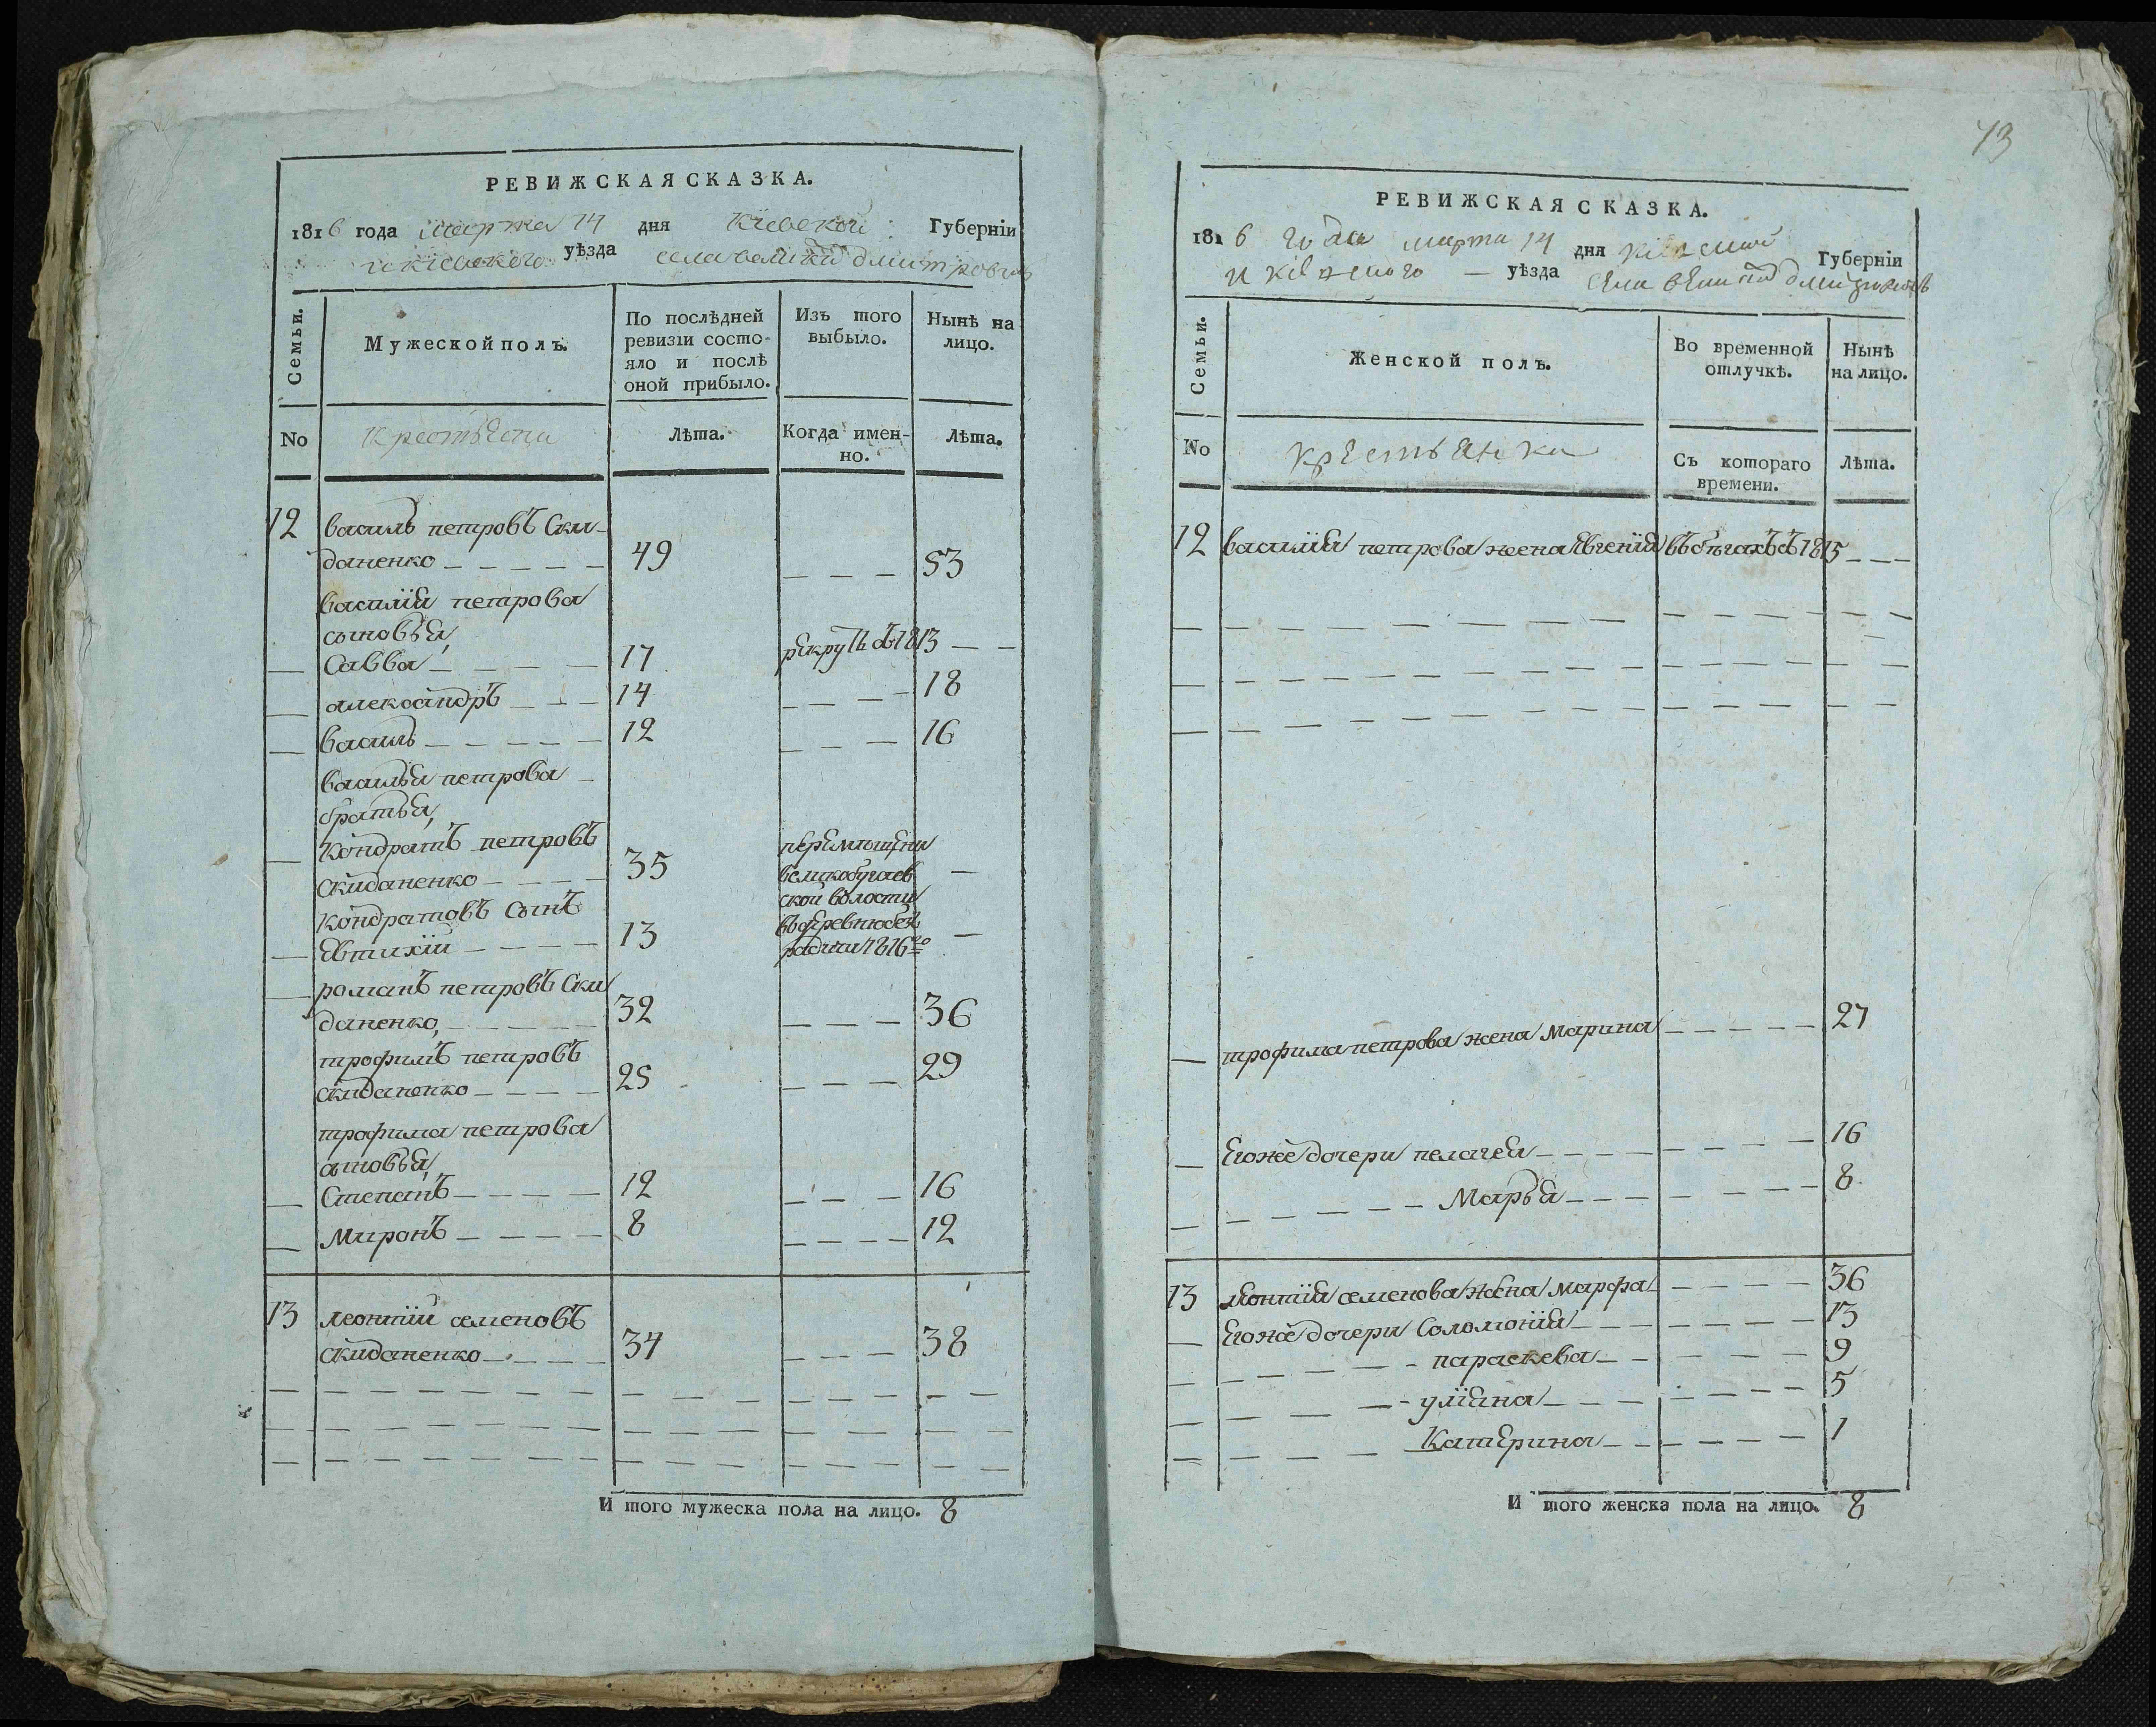 РЕВИЖСКАЯ СКАЗКА.
1816 года марта 14 дня Кіевской Губерніи
и кіевского уѣзда села великихъ дмитровичь
Семьи.
Мужеской полъ.
По послѣдней
ревизіи состо-
яло и послѣ
оной прибыло.
Изъ того
выбыло.
Нынѣ на
лицо.
No
крестьяни
Лѣта.
Когда имен-
но.
Лѣта.
12 василь петровъ Ски-
даненко 49 53
василія петрова
сыновья,
Савва 17 рекрутъ въ 1813
александръ 14 18
василь 12 16
василья петрова
братья,
Кондратъ петровъ перемѣщени
скиданенко 35
ской волости
кондратовъ Сынъ
Евтихій 13 1816го
романъ петровъ Ски
даненко, 32 36
трофимъ петровъ
скиданенко 25 29
трофима петрова
сыновья,
Степанъ 12 16
Миронъ 8 12
13 леонтій семеновъ
скиданенко 34 38
И того мужеска пола на лицо. 8
73
РЕВИЖСКАЯ СКАЗКА.
1816 года марта 14 дня кіевской Губерніи
и кіевского уѣзда села великихъ дмитровичь
Семьи.
Женской полъ.
Во временной
отлучкѣ.
Нынѣ
на лицо.
No
крестьянки
Съ котораго
времени.
Лѣта.
12 василія петрова жена Явгенія въ бѣгахъ съ 1815
трофима петрова жена Марина 27
Егоже дочери пелагея 16
Марья 8
13 леонтія семенова жена Марфа 36
Егоже дочери Соломонія 13
параскева 9
уліяна 5
Катерина 1
И того женска пола на лицо. 8